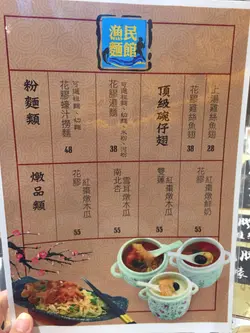 漁民
麵館
頂級碗仔翅
上湯雞絲魚翅
28
花膠雞絲魚翅
38
粉麵類
花膠湯麵
38
花膠蠔汁撈麵
48
燉品類
紅棗燉鮮奶
55
雙蓮
紅棗燉木瓜
55
南北杏
雪耳燉木瓜
55
花膠
紅棗燉木瓜
55